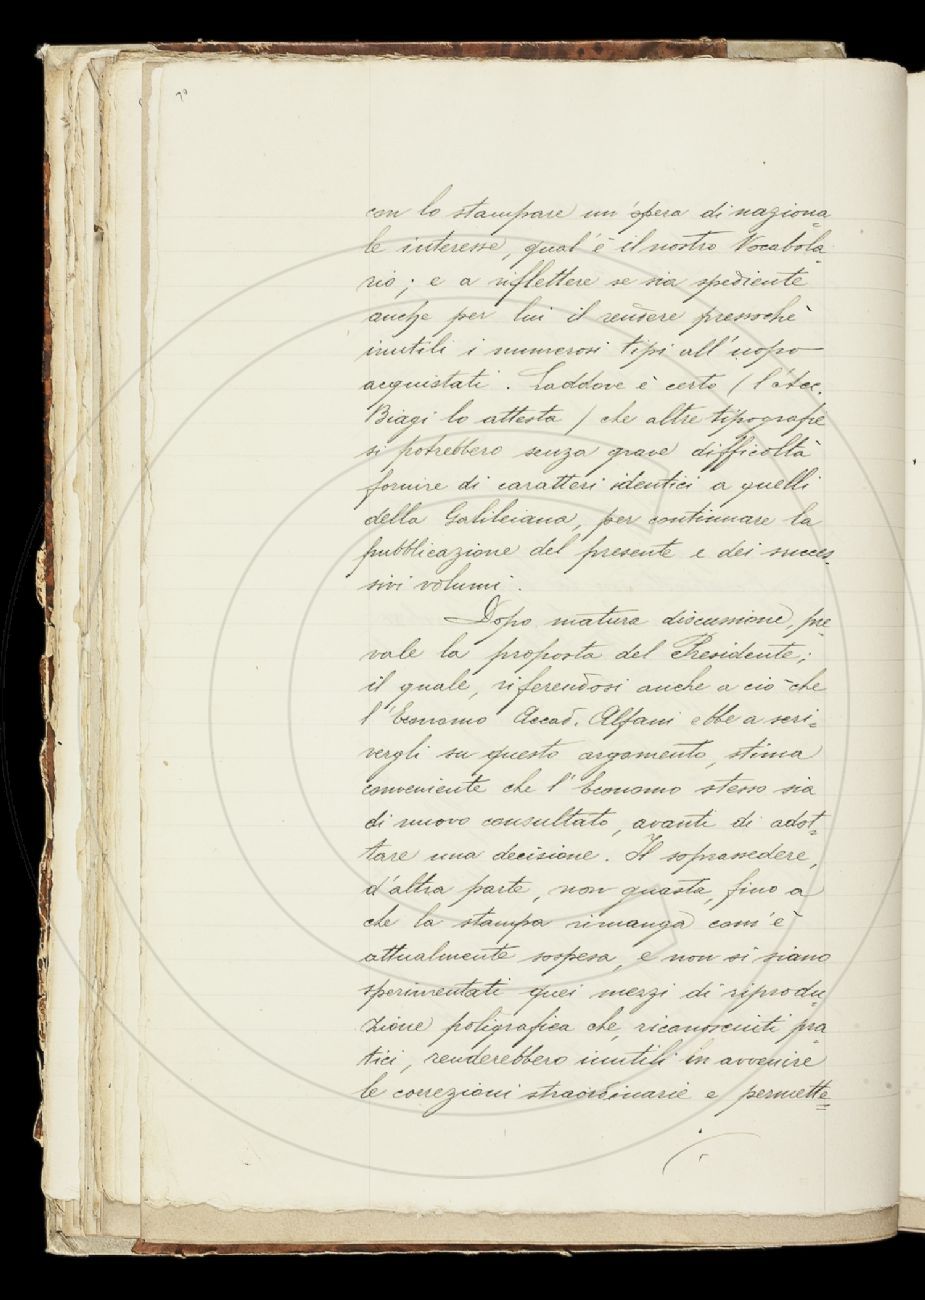 con lo stampare un'opera di naziona=
le interesse, qual'è il nostro Vocabola=
rio; e a riflettere se sia spediente
anche per lui il rendere pressochè
inutili i numerosi tipi all'uopo
acquistati. Laddove è certo (l'Acc.
Biagi lo attesta) che altre tipografie
si potrebbero senza grave difficoltà
fornire di caratteri identici a quelli
della Galileiana, per continuare la
pubblicazione del presente e dei succes=
sivi volumi.
Dopo matura discussione, pre=
vale la proposta del Presidente;
il quale, riferendosi anche a ciò che
l'Economo Accad. Alfani ebbe a scri=
vergli su questo argomento, stima
conveniente che l'Economo stesso sia
di nuovo consultato, avanti di adot=
tare una decisione. Il soprassedere,
d'altra parte, non guasta, fino a
che la stampa rimanga com'è
attualmente sospesa, e non si siano
sperimentati quei mezzi di riprodu=
zione poligrafica che, riconosciuti pra
tici, renderebbero inutili in avvenire
le correzioni straordinarie e permette=